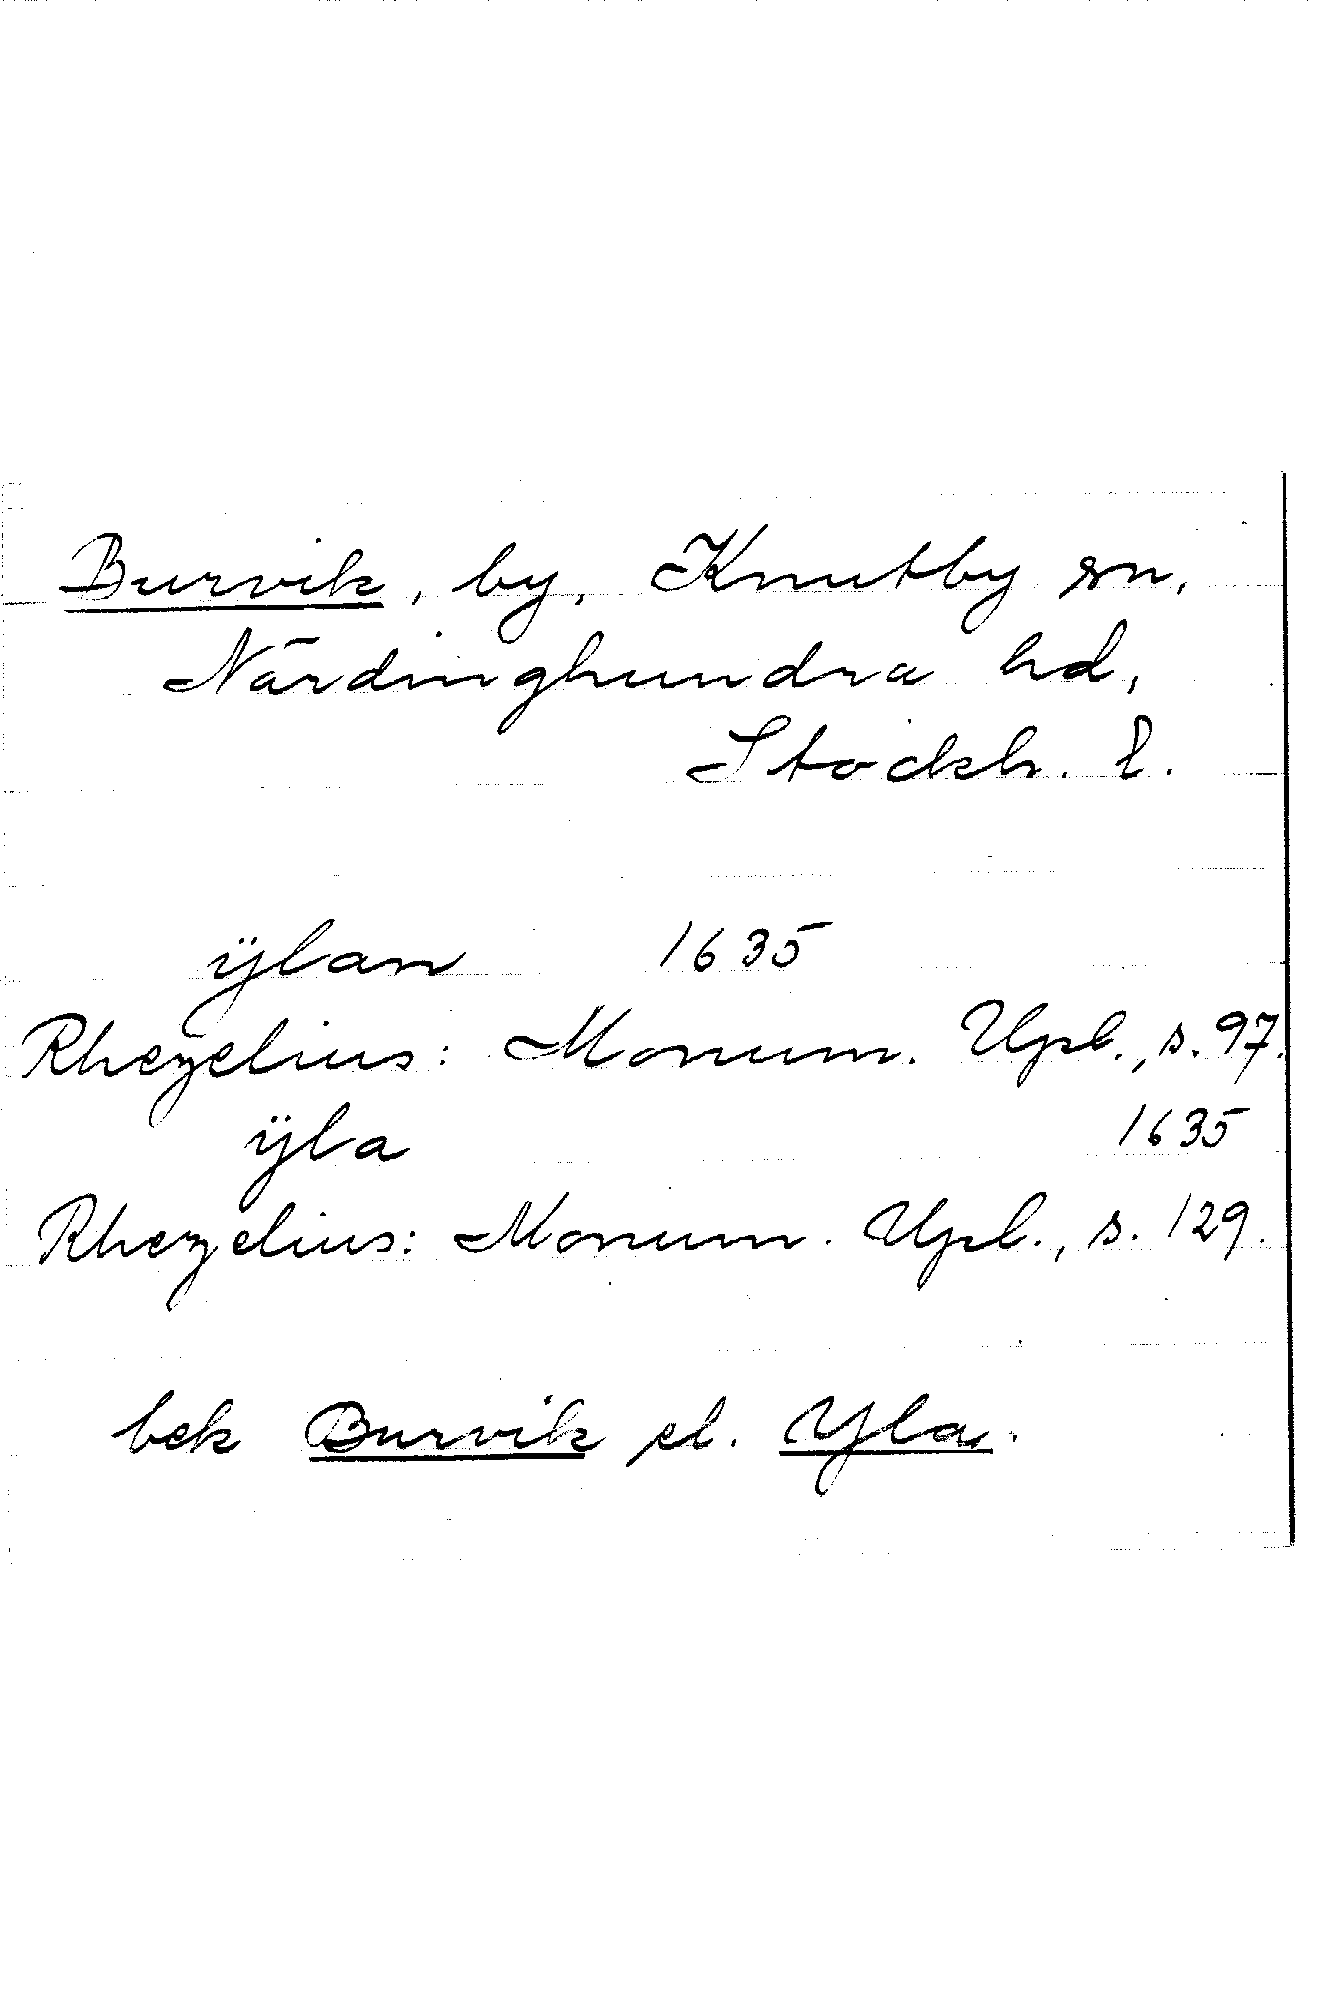 Burvik, by, Knutby sn,
Närdinghundra hd,
Stockh. l.
ÿlan 1635
Rhezelius: Monum. Upl., s. 97.
ÿla 1635
Rhezelius: Monum. Upl., s. 129.
bek Burvik el. Yla.